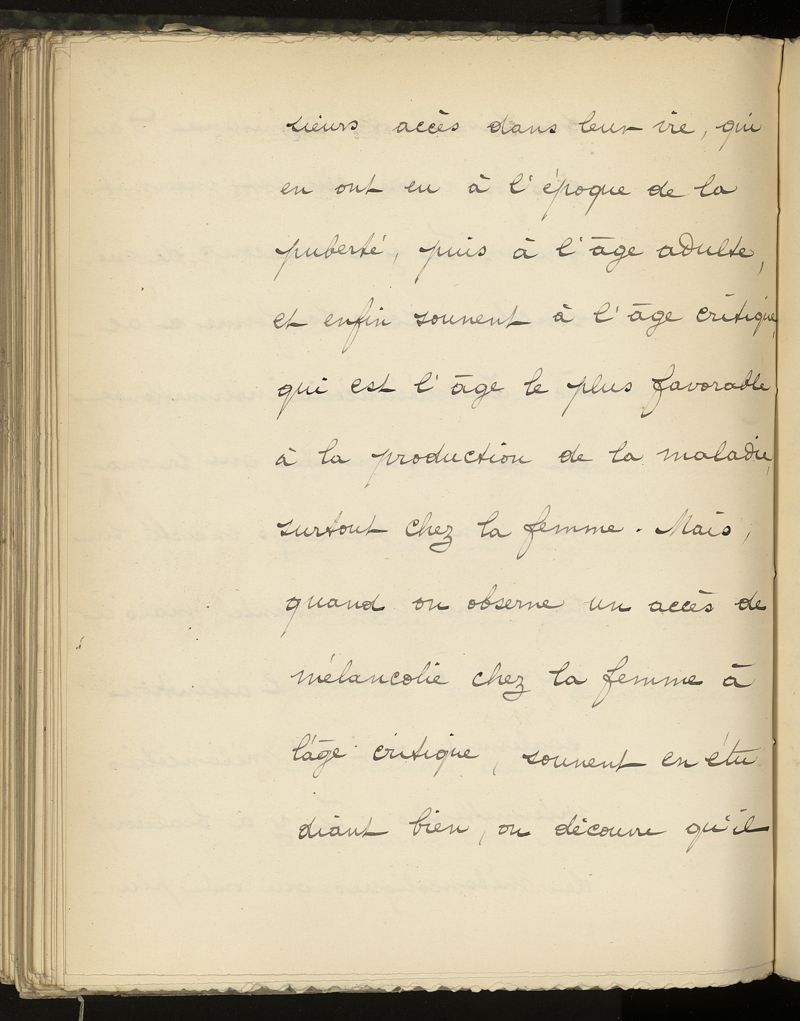 sieurs accès dans leur vie, qui
en ont eu à l'époque de la
puberté, puis à l'âge adulte,
et enfin souvent à l'âge critique,
qui est l'âge le plus favorable
à la production de la maladie,
surtout chez la femme. Mais,
quand on observe un accès de
mélancolie chez la femme à
l'âge critique, souvent en étu
diant bien, on découvre qu'il